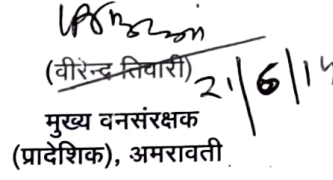 (वीरेन्द्र तिवारी)
21/6/1
मुख्य वनसंरक्षक
(प्रादेशिक), अमरावती